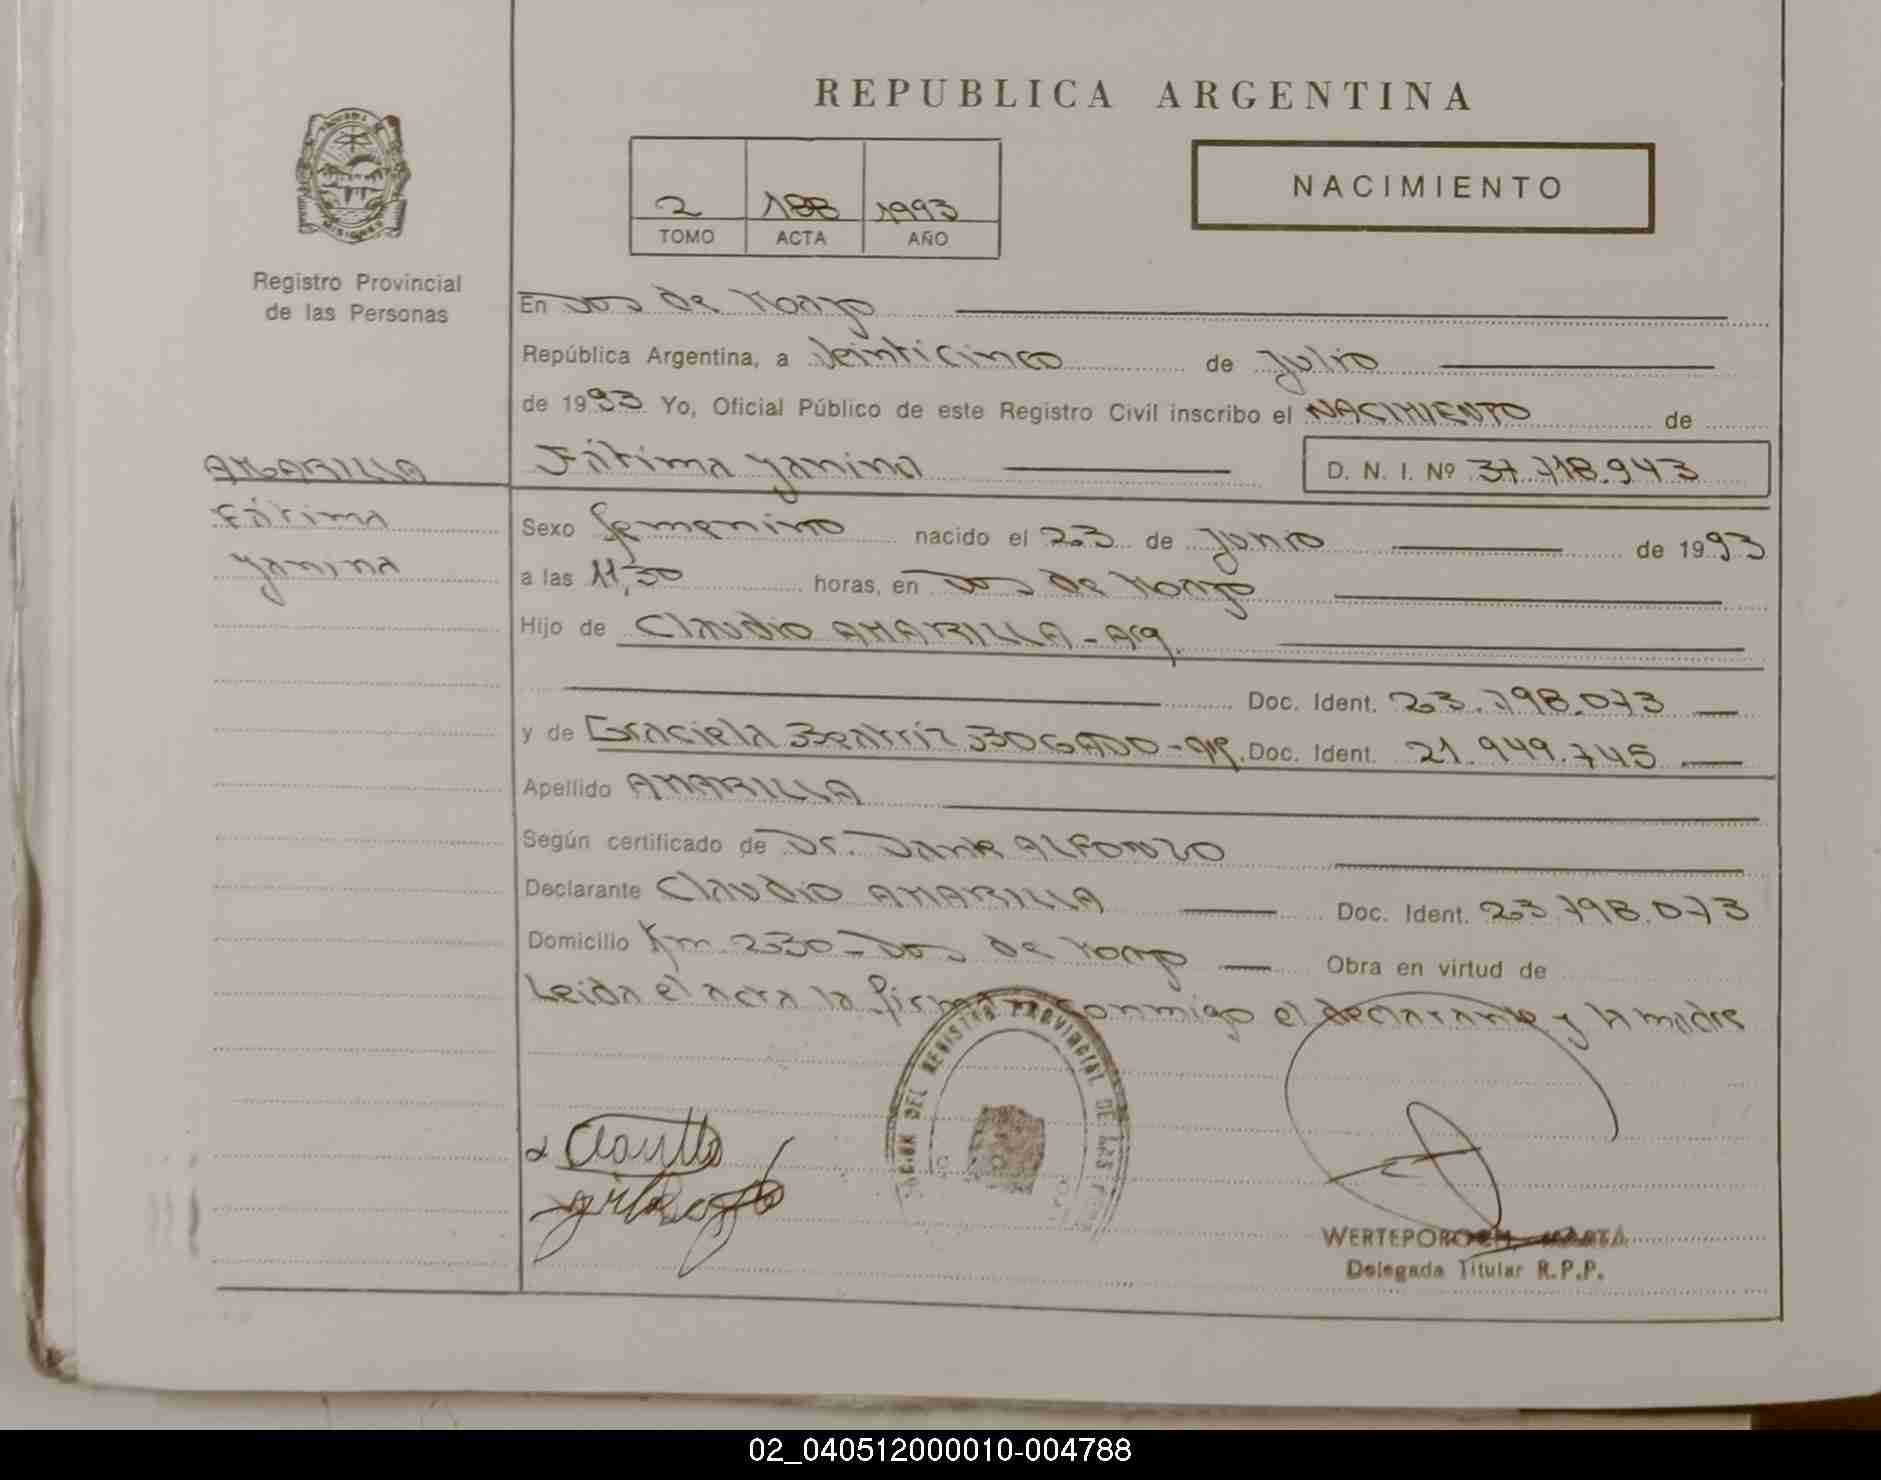 REPUBLICA ARGENTINA
NACIMIENTO
2 188 1993
TOMO ACTA AÑO
MISIONES
Registro Provincial
de las Personas
En Dos de Mayo
República Argentina, a Veinticinco de Julio
de 1993 Yo, Oficial Público de este Registro Civil inscribo el NACIMIENTO de
Fátima Yanina D. N. I. Nº 37.718.943
AMARILLA
Fátima
Yanina
Sexo femenino nacido el 23 de Junio de 1993
a las 11,30 horas, en Dos de Mayo
Hijo de Claudio AMARILLA - Arg.
Doc. Ident. 23.798.073
y de Graciela Beatriz BOGADO - Arg. Doc. Ident. 21.949.745
Apellido AMARILLA
Según certificado de Dr. Dank ALFONZO
Declarante Claudio AMARILLA Doc. Ident. 23.798.073
Domicilio Km. 230 - Dos de Mayo Obra en virtud de
Leida el acta la firman conmigo el declarante y la madre
DEL REGISTRO PROVINCIAL DE LAS
WERTEPOROCH, MARTA
Delegada Titular R.P.P.
02_040512000010-004788